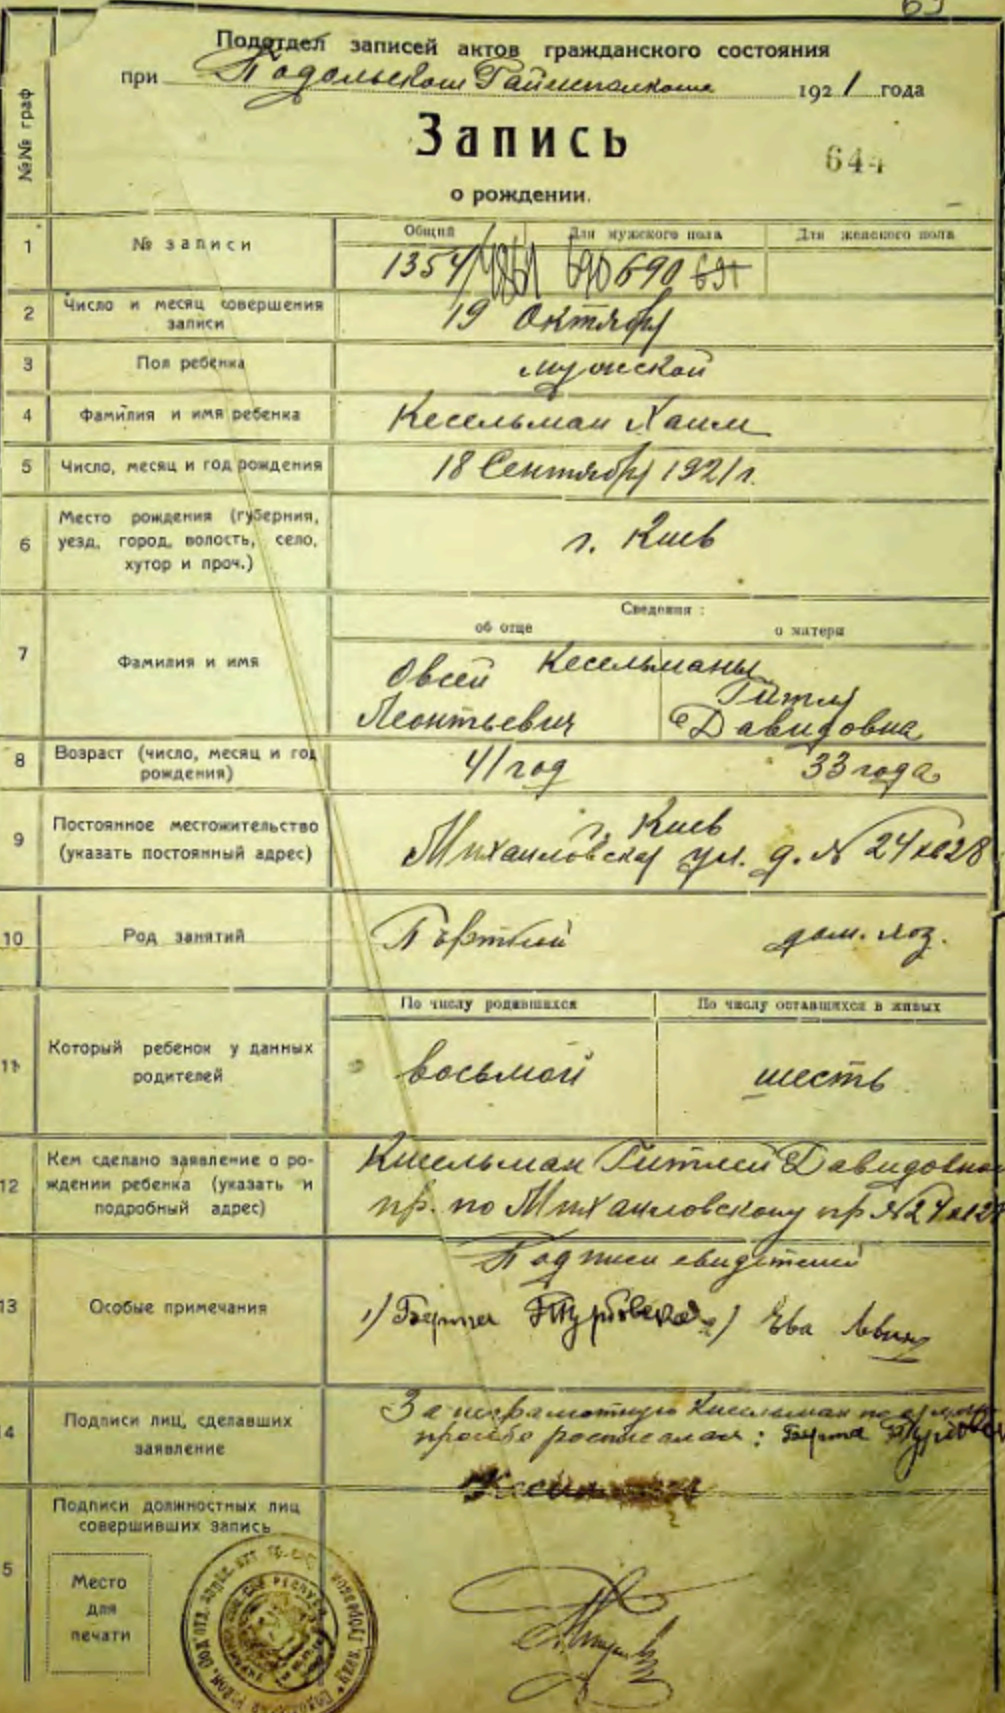 Подотдел записей актов гражданского состояния
при Подольском Райисполкоме 1921 года
Запись
644
о рождении.
№№ граф
1 № записи
Общий Для мужского пола Для женского пола
1354/ 690 690 691
2 Число и месяц совершения записи
19 Октября
3 Пол ребенка
мужской
4 Фамилия и имя ребенка
Кесельман Хаим
5 Число, месяц и год рождения
18 Сентября 1921 г.
6 Место рождения (губерния,
уезд, город, волость, село,
хутор и проч.)
г. Киев
Сведения:
об отце о матери
7 Фамилия и имя
Кесельманы
Овсей Гитля
Леонтьевич Давидовна
8 Возраст (число, месяц и год
рождения)
41 год 33 года
9 Постоянное местожительство
(указать постоянный адрес)
г. Киев
Михайловская ул. д. № 24 кв 28
10 Род занятий
Портной дом. хоз.
По числу родившихся По числу оставшихся в живых
11 Который ребенок у данных
родителей
восьмой шесть
12 Кем сделано заявление о ро-
ждении ребенка (указать и
подробный адрес)
Кисельман Гитлей Давидовной
пр. по Михайловскому пр №24
Подписи свидетелей
13 Особые примечания
1) Берта Турбовская 2) Ева Левин
14 Подписи лиц, сделавших
заявление
За неграмотную Кисельман по
просьбе росписалась: Берта
Подписи должностных лиц
совершивших запись
5
Место
для
печати